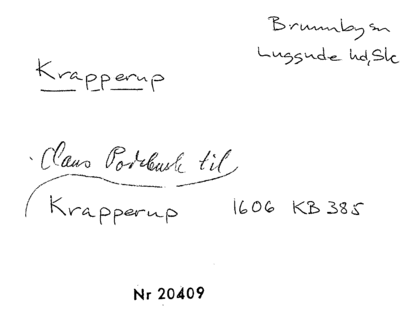 Brunnby sn
Luggude hd, Sk
Krapperup
Claus Podebusk til
Krapperup 1606 KB 385
Nr 20409